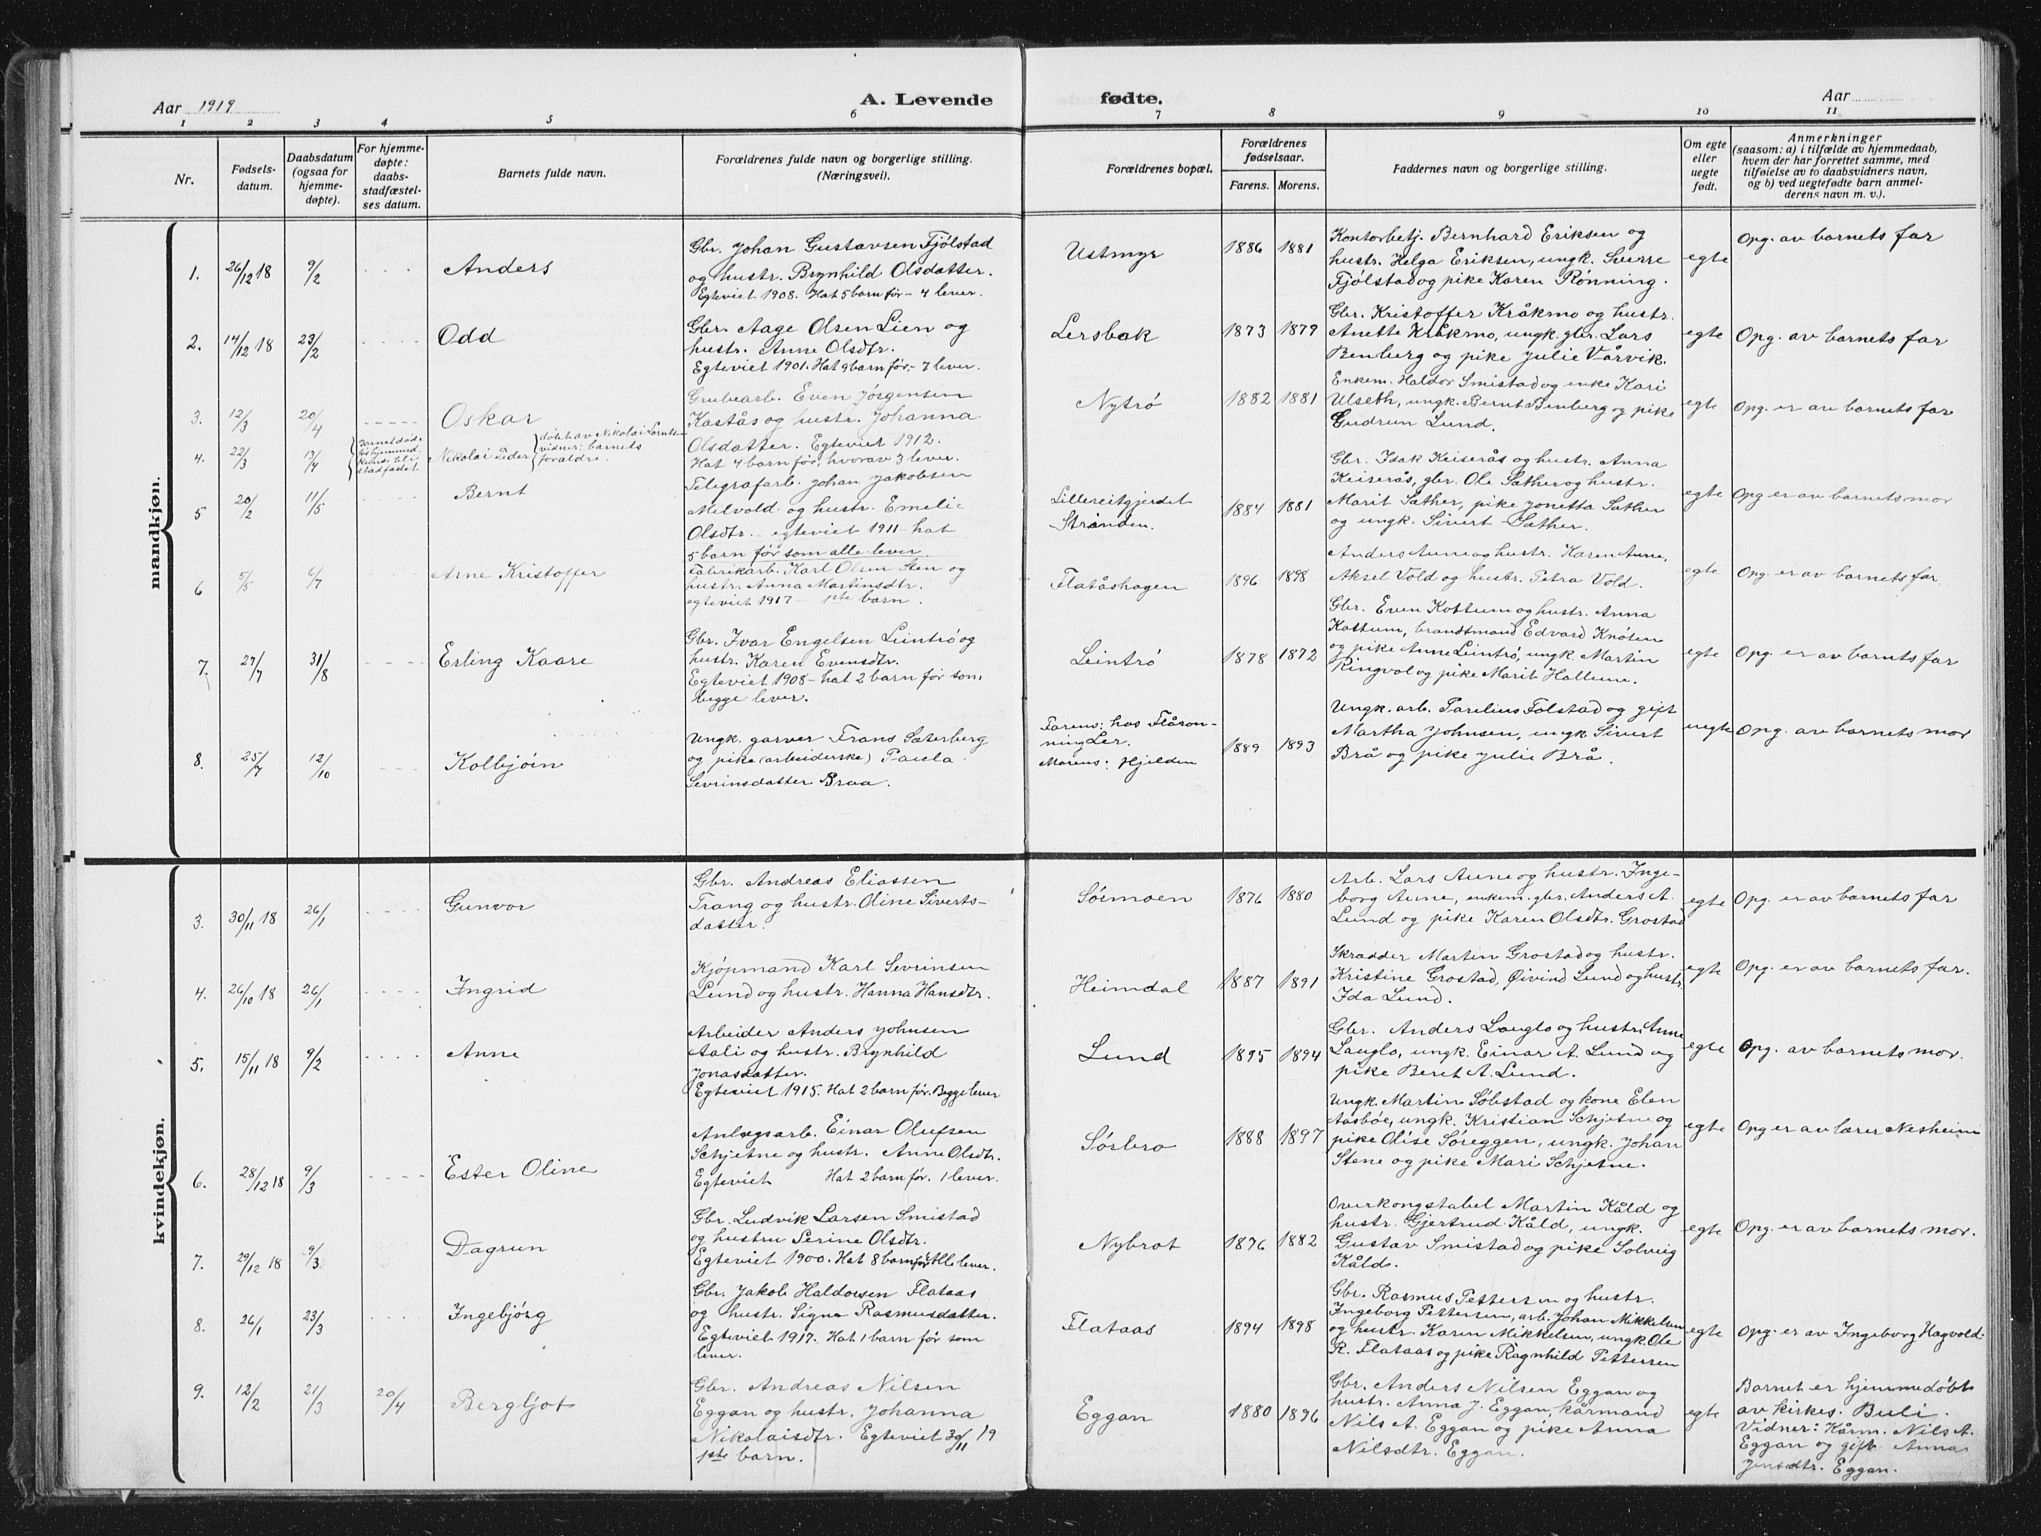 Aar 1919
A. Levende
fødte.
Aar
1 2 3 4 5 6 7 8 9 10 11
Nr.
Fødsels-
datum.
Daabsdatum
(ogsaa for
hjemme-
døpte).
For hjemme-
døpte:
daabs-
stadfæstel-
ses datum.
Barnets fulde navn.
Forældrenes fulde navn og borgerlige stilling.
(Næringsvei).
Forældrenes bopæl.
Forældrenes
fødselsaar.
Farens. Morens.
Faddernes navn og borgerlige stilling.
Om egte
eller
uegte
født.
Anmerkninger
(saasom: a) i tilfælde av hjemmedaab,
hvem der har forrettet samme, med
tilføielse av to daabsvidners navn,
og b) ved uegtefødte barn anmel-
derens navn m. v.).
mandkjøn.
1. 26/12 18 9/2 Anders
Gbr. Johan Gustavsen Fjølstad
og hustr. Brynhild Olsdatter.
Egteviet 1908. Hat 5 barn før - 4 lever.
Ustmyr 1886 1881
Kontorbetj. Bernhard Eriksen og
hustr. Helga Eriksen, ungk. Sverre
Fjølstad og pike Karen Rønning.
egte Opg. av barnets far
2. 14/12 18 23/2 Odd
Gbr. Aage Olsen Lien og
hustr. Anne Olsdtr.
Egteviet 1901. Hat 9 barn før - 7 lever.
Lersbak 1873 1879
Gbr. Kristoffer Kråkmo og hustr.
Anette Kråkmo, ungk. gbr. Lars
Benberg og pike Julie Vårvik.
egte Opg. av barnets far
3. 12/3 20/4 Oskar
Grubearb. Even Jørgensen
Kastås og hustr. Johanna
Olsdatter. Egteviet 1912.
Hat 4 barn før, hvorav 3 lever.
Nytrø 1882 1881
Enkem. Haldor Smistad og enke Kari
Ulseth, ungk. Bernt Benberg og pike
Gudrun Lund.
egte Opg. er av barnets far
4. 22/3 13/4 Nikolai Peder
døbt av Nikolai
vidner: barnets
forældre.
5 20/2 11/5 Bernt
Telegrafarb. Johan Jakobsen
Melvold og hustr. Emelie
Olsdtr. - egteviet 1911 - hat
5 barn før som alle lever.
Strånden. 1884 1881
Gbr. Isak Keiserås og hustr. Anna
Keiserås, gbr. Ole Sæther og hustr.
Marit Sæther, pike Jonetta Sæther
og ungk. Sivert Sæther.
egte Opg er av barnets mor
6 5/5 6/7 Arne Kristoffer
Fabrikarb. Karl Olsen Sten og
hustr. Anna Martinsdtr.
egteviet 1917 - 1ste barn.
Flatåshagen 1896 1898
Anders Aune og hustr. Karen Aune,
Aksel Vold og hustr. Petra Vold.
egte Opg. er av barnets far.
7. 27/7 31/8 Erling Kaare
Gbr. Ivar Engelsen Leintrø og
hustr. Karen Evensdtr.
Egteviet 1908 - hat 2 barn før som
begge lever.
Leintrø 1878 1872
Gbr. Even Kottum og hustr. Anna
Kottum, brandtmand Edvard Knoten
og pike Anne Leintrø, ungk. Martin
Ringvol og pike Marit Hallum.
egte Opg. er av barnets far
8. 25/7 12/10 Kolbjøin
Ungk. garver Frans Sæterberg
og pike (arbeiderske) Paula
Sevrinsdatter Braa.
Farens: hos Flåron-
ning Ler.
Morens: Hjelden
1889 1893
Ungk. arb. Parelius Folstad og gift
Martha Johnsen, ungk. Sivert
Brå og pike Julie Brå.
uegte Opg. av barnets mor
kvindekjøn.
3. 30/11 18 26/1 Gunvor
Gbr. Andreas Eliassen
Trang og hustr. Oline Siverts-
datter.
Søimoen 1876 1880
Arb. Lars Aune og hustr. Inge-
borg Aune, enkem. gbr. Anders A.
Lund og pike Karen Olsdtr. Grostad
egte Opg. er av barnets far
4. 26/10 18 26/1 Ingrid
Kjøpmand Karl Sevrinsen
Lund og hustr. Hanna Hansdtr.
Heimdal 1887 1891
Skrædder Martin Grostad og hustr.
Kristine Grostad, Øivind Lund og hustr.
Ida Lund.
egte Opg. er av barnets far.
5. 15/11 18 9/2 Anne
Arbeider Anders Johnsen
Aali og hustr. Brynhild
Jonasdatter.
Egteviet 1915. Hat 2 barn før. Begge lever
Lund 1895 1894
Gbr. Anders Lauglo og hustr. Anne
Lauglo, ungk. Einar A. Lund og
pike Beret A. Lund.
egte Opg. av barnets mor.
6. 28/12 18 9/3 Ester Oline
Anlægsarb. Einar Olufsen
Schjetne og hustr. Anne Olsdtr.
Egteviet Hat 2 barn før. 1 lever.
Sørbro 1888 1897
Ungk. Martin Solstad og kone Elen
Aasbøe, ungk. Kristian Schjetne og
pike Olise Søreggen, ungk. Johan
Stene og pike Mari Schjetne.
egte Opg er av lærer Nesheim
7. 29/12 18 9/3 Dagrun
Gbr. Ludvik Larsen Smistad
og hustru Serine Olsdtr.
Egteviet 1900. Hat 8 barn før Alle lever.
Nybrot 1876 1882
Overkonstabel Martin Kåld og
hustr. Gjertrud Kåld, ungk.
Gustav Smistad og pike Solveig
Kåld.
egte Opg. er av barnets mor.
8. 26/1 23/3 Ingebjørg
Gbr. Jakob Haldorsen Flataas
og hustr. Signe Rasmusdatter.
Egteviet 1917. Hat 1 barn før som
lever.
Flataas 1894 1898
Gbr. Rasmus Pettersen og hustr.
Ingeborg Pettersen, arb. Johan Mikkelsen
og hustr. Karen Mikkelsen, ungk. Ole
R. Flataas og pike Ragnhild Pettersen
egte Opg. er av Ingeborg Hagvold.
9. 12/2 21/3 20/4 Bergljot
Gbr. Andreas Nilsen
Eggan og hustr. Johanna
Nikolaisdtr. Egteviet 30/11 19
1ste barn.
Eggan 1880 1896
Gbr. Anders Nilsen Eggan og
hustr. Anna J. Eggan, kårmand
Nils A. Eggan og pike Anna
Nilsdtr. Eggan.
egte
Barnet er hjemmedøbt
av kirkes. Buli.
Vidner: Kårm. Nils A.
Eggan og gift Anna
Jensdtr. Eggan.